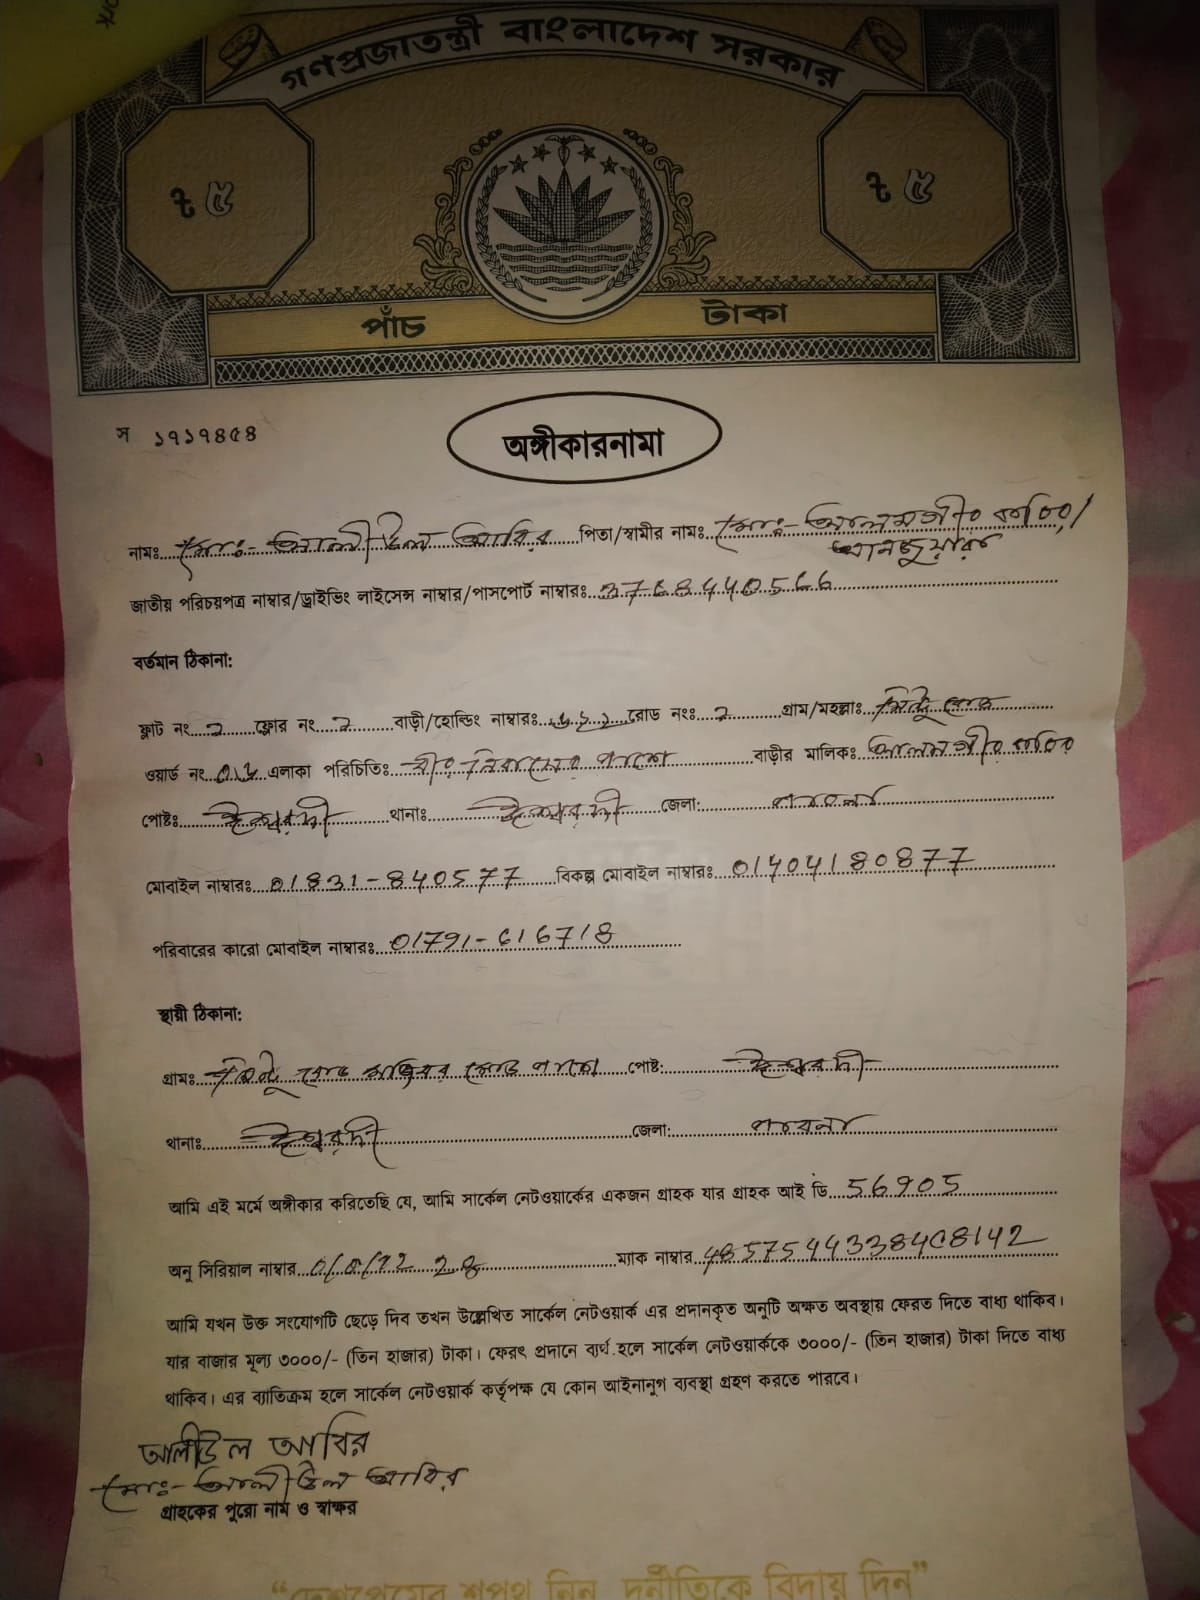 ork
গণপ্রজাতন্ত্রী বাংলাদেশ সরকার
৳ ৫ ৳ ৫
পাঁচ টাকা
স ১৭১৭৪৫৪
অঙ্গীকারনামা
নামঃ মোঃ- আলীউল আবির পিতা/স্বামীর নামঃ মোঃ- আলমগীর কবির/
আনজুয়ারা
জাতীয় পরিচয়পত্র নাম্বার/ড্রাইভিং লাইসেন্স নাম্বার/পাসপোর্ট নাম্বারঃ 3768440566
বর্তমান ঠিকানা:
ফ্লাট নং 2 ফ্লোর নং 2 বাড়ী/হোল্ডিং নাম্বারঃ রোড নংঃ 2 গ্রাম/মহল্লাঃ রোড
ওয়ার্ড নং এলাকা পরিচিতিঃ পাশে বাড়ীর মালিকঃ আলমগীর কবির
পোষ্টঃ ঈশ্বরদী থানাঃ ঈশ্বরদী জেলা: পাবনা
মোবাইল নাম্বারঃ 01831-840577 বিকল্প মোবাইল নাম্বারঃ 01404180877
পরিবারের কারো মোবাইল নাম্বারঃ 01791-616718
স্থায়ী ঠিকানা:
গ্রামঃ রোড মোড় পাশে পোষ্ট: ঈশ্বরদী
থানাঃ ঈশ্বরদী জেলা: পাবনা
আমি এই মর্মে অঙ্গীকার করিতেছি যে, আমি সার্কেল নেটওয়ার্কের একজন গ্রাহক যার গ্রাহক আই ডি 56905
অনু সিরিয়াল নাম্বার ম্যাক নাম্বার
আমি যখন উক্ত সংযোগটি ছেড়ে দিব তখন উল্লেখিত সার্কেল নেটওয়ার্ক এর প্রদানকৃত অনুটি অক্ষত অবস্থায় ফেরত দিতে বাধ্য থাকিব।
যার বাজার মূল্য ৩০০০/- (তিন হাজার) টাকা। ফেরৎ প্রদানে ব্যর্থ হলে সার্কেল নেটওয়ার্ককে ৩০০০/- (তিন হাজার) টাকা দিতে বাধ্য
থাকিব। এর ব্যাতিক্রম হলে সার্কেল নেটওয়ার্ক কর্তৃপক্ষ যে কোন আইনানুগ ব্যবস্থা গ্রহণ করতে পারবে।
আলীউল আবির
মোঃ- আলীউল আবির
গ্রাহকের পুরো নাম ও স্বাক্ষর
“দেশপ্রেমের শপথ নিন, দুর্নীতিকে বিদায় দিন”